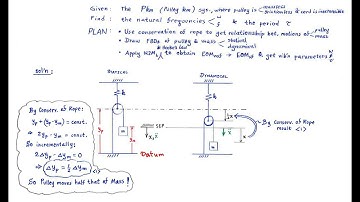 Given: The Pkm (Pulley km) sys. where pulley is massless frictionless & cord is inextensible
Find: the natural frequencies ω f & the period τ
PLAN: • Use conservation of rope to get relationship bet. motions of pulley mass
• Draw FBDs of pulley & mass statical dynamical
& Hooke's Law
• Apply N2Ms to obtain EOMs & get vib'n parameters ω f τ
sol'n:
STATICAL
DYNAMICAL
By Conserv. of Rope:
yp + (yp - ym) = const.
⇒ 2yp - ym = const.
So incrementally:
2Δyp - Δym = 0
⇒ Δyp = ½ Δym <1>
So Pulley moves half that of Mass!
k
yp
ym
m
Datum
SEP
k
½x
x
By Conserv. of Rope
result <1>